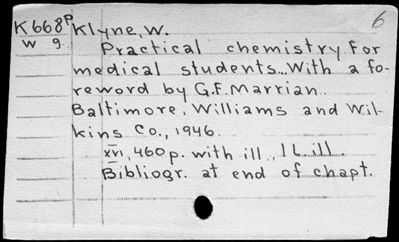 6
K668p Klyne, W.
w g. Practical chemistry for
medical students...With a fo-
reword by G.F. Marrian.
Baltimore, Williams and Wil-
kins Co., 1946.
xvi, 460 p. with ill., 1 L. ill.
Bibliogr. at end of chapt.